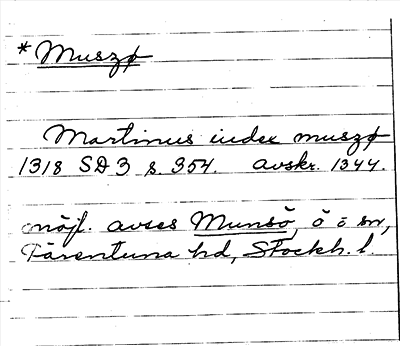 * Muszø
Martinus iudex muszø
1318 SD 3 s. 354. avskr. 1344.
möjl. avses Munsö, ö o sn,
Färentuna hd, Stockh. l.